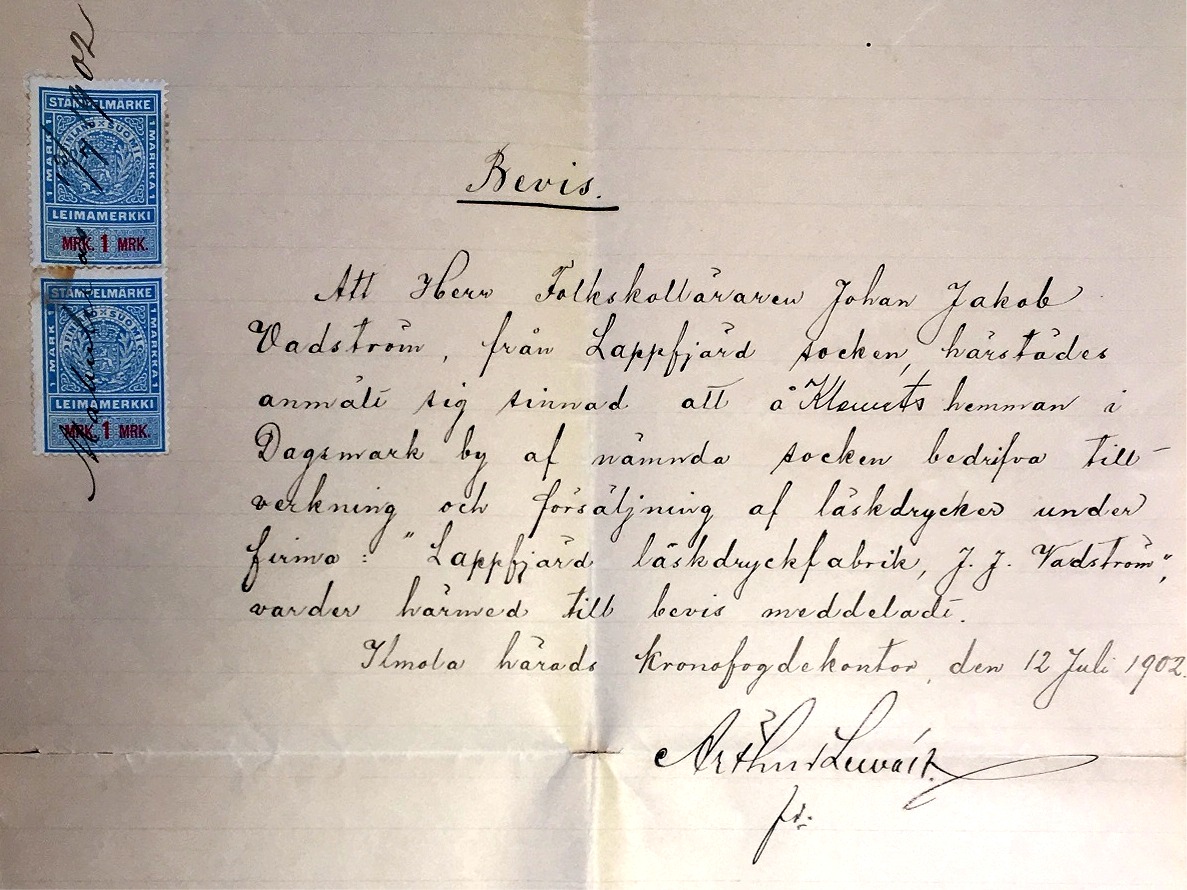 1902
STÄMPELMÄRKE
1 MARK 1
1 MARKKA 1
LEIMAMERKKI
MRK. 1 MRK.
STÄMPELMÄRKE
1 MARK 1
1 MARKKA 1
LEIMAMERKKI
MRK. 1 MRK.
Bevis.
Att Herr Folkskolläraren Johan Jakob
Vadström, från Lappfjärd socken, härstädes
anmält sig sinnad att å Klemets hemman i
Dagsmark by af nämnda socken bedrifva till-
verkning och försäljning af läskdrycker under
firma: "Lappfjärd läskdryckfabrik, J. J. Vadström",
varder härmed till bevis meddeladt.
Ilmola härads kronofogdekontor, den 12 Juli 1902.
Arthur